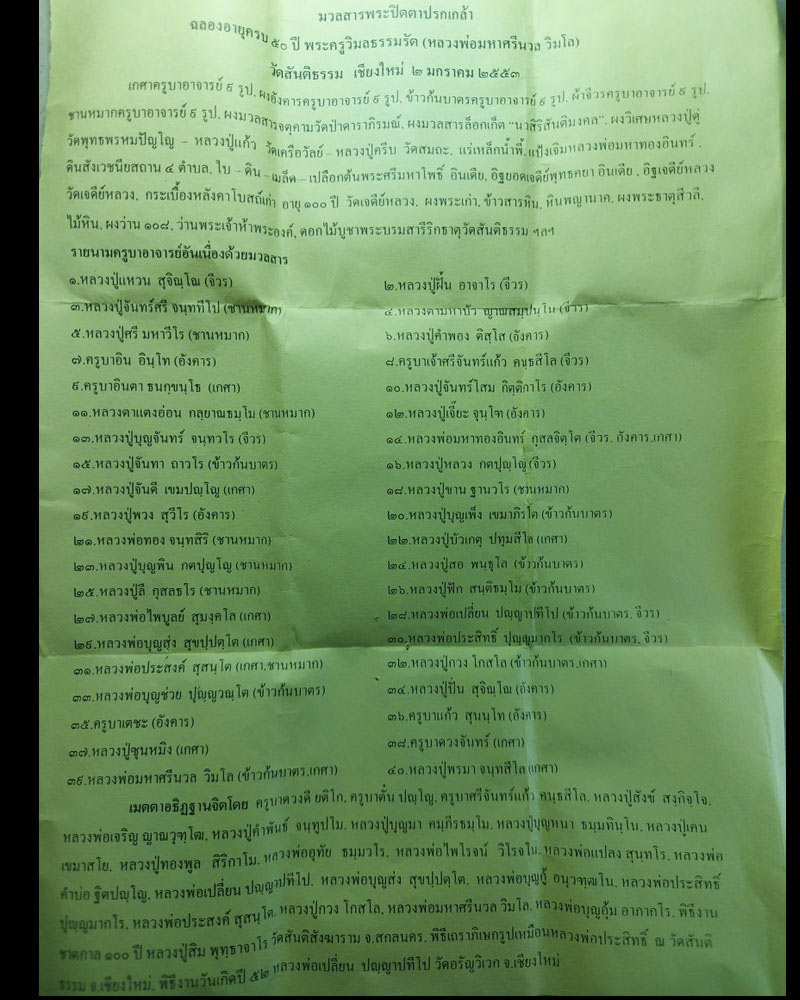 มวลสารพระปิดตาปรกเกล้า
ฉลองอายุครบ ๕๐ ปี พระครูวิมลธรรมรัต (หลวงพ่อมหาศรีนวล วิมโล)
วัดสันติธรรม เชียงใหม่ ๒ มกราคม ๒๕๕๓
เกศาครูบาอาจารย์ ๙ รูป, ผงอังคารครูบาอาจารย์ ๙ รูป, ข้าวก้นบาตรครูบาอาจารย์ ๙ รูป, ผ้าจีวรครูบาอาจารย์ ๙ รูป,
ชานหมากครูบาอาจารย์ ๙ รูป, ผงมวลสารจตุคามวัดป่าดาราภิรมณ์, ผงมวลสารล็อกเก็ต "นาสิริสันติมงคล", ผงวิเศษหลวงปู่ดู่
วัดพุทธพรหมปัญโญ – หลวงปู่แก้ว วัดเครือวัลย์ – หลวงปู่ครีบ วัดสมถะ, แร่เหล็กน้ำพี้, แป้งเจิมหลวงพ่อมหาทองอินทร์ ,
ดินสังเวชนียสถาน ๔ ตำบล, ใบ – ดิน – เมล็ด – เปลือกต้นพระศรีมหาโพธิ์ อินเดีย, อิฐยอดเจดีย์พุทธคยา อินเดีย , อิฐเจดีย์หลวง
วัดเจดีย์หลวง, กระเบื้องหลังคาโบสถ์เก่า อายุ ๑๐๐ ปี วัดเจดีย์หลวง, ผงพระเก่า, ข้าวสารหิน, หินพญานาค, ผงพระธาตุสีวลี,
ไม้หิน, ผงว่าน ๑๐๘, ว่านพระเจ้าห้าพระองค์, ดอกไม้บูชาพระบรมสารีริกธาตุวัดสันติธรรม ฯลฯ
รายนามครูบาอาจารย์อันเนื่องด้วยมวลสาร
๑.หลวงปู่แหวน สุจิณฺโณ (จีวร) ๒.หลวงปู่ฝั้น อาจาโร (จีวร)
๓.หลวงปู่จันทร์ศรี จนฺททีโป (ชานหมาก) ๔.หลวงตามหาบัว ญาณสมฺปนฺโน (จีวร)
๕.หลวงปู่ศรี มหาวีโร (ชานหมาก) ๖.หลวงปู่คำพอง ติสฺโส (อังคาร)
๗.ครูบาอิน อินฺโท (อังคาร) ๘.ครูบาเจ้าศรีจันทร์แก้ว คนฺธสีโล (จีวร)
๙.ครูบาอินตา ธนกฺขนฺโธ (เกศา) ๑๐.หลวงปู่จันทร์โสม กิตฺติกาโร (อังคาร)
๑๑.หลวงตาแตงอ่อน กลฺยาณธมฺโม (ชานหมาก) ๑๒.หลวงปู่เจี๊ยะ จุนฺโท (อังคาร)
๑๓.หลวงปู่บุญจันทร์ จนฺทวโร (จีวร) ๑๔.หลวงพ่อมหาทองอินทร์ กุสลจิตฺโต (จีวร, อังคาร,เกศา)
๑๕.หลวงปู่จันทา ถาวโร (ข้าวก้นบาตร) ๑๖.หลวงปู่หลวง กตปุญฺโญ (จีวร)
๑๗.หลวงปู่จันดี เขมปญฺโญ (เกศา) ๑๘.หลวงปู่ขาน ฐานวโร (ชานหมาก)
๑๙.หลวงปู่พวง สุวีโร (อังคาร) ๒๐.หลวงปู่บุญเพ็ง เขมาภิรโต (ข้าวก้นบาตร)
๒๑.หลวงพ่อทอง จนฺทสิริ (ชานหมาก) ๒๒.หลวงปู่บัวเกตุ ปทุมสีโล (เกศา)
๒๓.หลวงปู่บุญพิน กตปุญฺโญ (ชานหมาก) ๒๔.หลวงปู่สอ พนฺธุโล (ข้าวก้นบาตร)
๒๕.หลวงปู่ลี กุสลธโร (ชานหมาก) ๒๖.หลวงปู่ฟัก สนฺติธมฺโม (ข้าวก้นบาตร)
๒๗.หลวงพ่อไพบูลย์ สุมงฺคโล (เกศา) ๒๘.หลวงพ่อเปลี่ยน ปญฺญาปทีโป (ข้าวก้นบาตร, จีวร)
๒๙.หลวงพ่อบุญส่ง สุขปฺปตฺโต (เกศา) ๓๐.หลวงพ่อประสิทธิ์ ปุญฺญมากโร (ข้าวก้นบาตร, จีวร)
๓๑.หลวงพ่อประสงค์ สุสนฺโต (เกศา,ชานหมาก) ๓๒.หลวงปู่กวง โกสโล (ข้าวก้นบาตร,เกศา)
๓๓.หลวงพ่อบุญช่วย ปุญฺญวณฺโต (ข้าวก้นบาตร) ๓๔.หลวงปู่ปั่น สุจิณฺโณ (อังคาร)
๓๕.ครูบาเตชะ (อังคาร) ๓๖.ครูบาแก้ว สุนนฺโท (อังคาร)
๓๗.หลวงปู่ซุนหมิง (เกศา) ๓๘.ครูบาดวงจันทร์ (เกศา)
๓๙.หลวงพ่อมหาศรีนวล วิมโล (ข้าวก้นบาตร,เกศา) ๔๐.หลวงปู่พรมา จนฺทสีโล (เกศา)
เมตตาอธิฏฐานจิตโดย ครูบาดวงดี ยติโก, ครูบาตั๋น ปญฺโญ, ครูบาศรีจันทร์แก้ว คนฺธสีโล, หลวงปู่สังข์ สงฺกิจฺโจ,
หลวงพ่อเจริญ ญาณวุฑฺโฒ, หลวงปู่คำพันธ์ จนฺทูปโม, หลวงปู่บุญมา คมฺภีรธมฺโม, หลวงปู่บุญหนา ธมฺมทินฺโน, หลวงปู่เคน
เขมาสโย, หลวงปู่ทองพูล สิริกาโม, หลวงพ่ออุทัย ธมฺมวโร, หลวงพ่อไพโรจน์ วิโรจโน, หลวงพ่อแปลง สุนฺทโร, หลวงพ่อ
คำบ่อ ฐิตปญฺโญ, หลวงพ่อเปลี่ยน ปญฺญาปทีโป, หลวงพ่อบุญส่ง สุขปฺปตฺโต, หลวงพ่อบุญกู้ อนุวฑฺฒโน, หลวงพ่อประสิทธิ์
ปุญฺญมากโร, หลวงพ่อประสงค์ สุสนฺโต, หลวงปู่กวง โกสโล, หลวงพ่อมหาศรีนวล วิมโล, หลวงพ่อบุญอุ้ม อาภากโร, พิธีงาน
ชาตกาล ๑๐๐ ปี หลวงปู่สิม พุทฺธาจาโร วัดสันติสังฆาราม จ.สกลนคร, พิธีเถราภิเษกรูปเหมือนหลวงพ่อประสิทธิ์ ณ วัดสันติ
ธรรม จ.เชียงใหม่, พิธีงานวันเกิดปี ๕๒ หลวงพ่อเปลี่ยน ปญฺญาปทีโป วัดอรัญวิเวก จ.เชียงใหม่